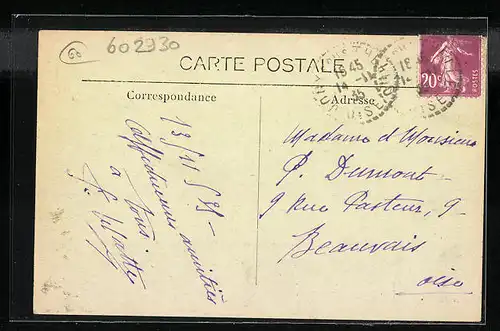 60
602730
CARTE POSTALE
Correspondance
Adresse
18 45
14 -11
35
OISE
20c
POSTES
13/11/35 -
Affectueuses amitiés
à tous
Madame et Monsieur
P. Dumont -
9 Rue Pasteur, 9 -
Beauvais
Oise